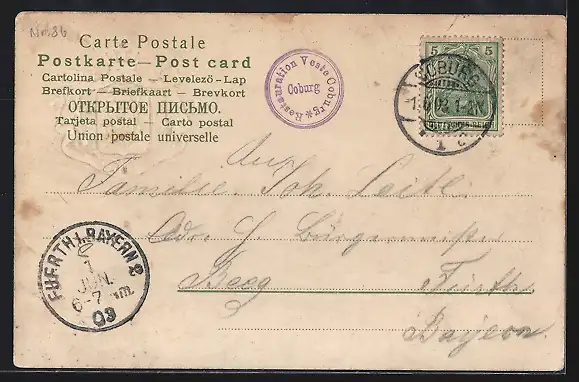 Nr. 86
Carte Postale
Postkarte — Post card
Cartolina Postale - Levelező-Lap
Brefkort - Briefkaart - Brevkort
ОТКРЫТОЕ ПИСЬМО.
Tarjeta postal - Carto postal
Union postale universelle
* Restauration Veste Coburg *
Coburg
5 5
COBURG
1
An
Familie Joh. Leitl
Adr. H. Bürgermstr
Beeg Fürth
Bayern
FUERTH I. BAYERN 2
1
JUN.
6-7 nm.
03